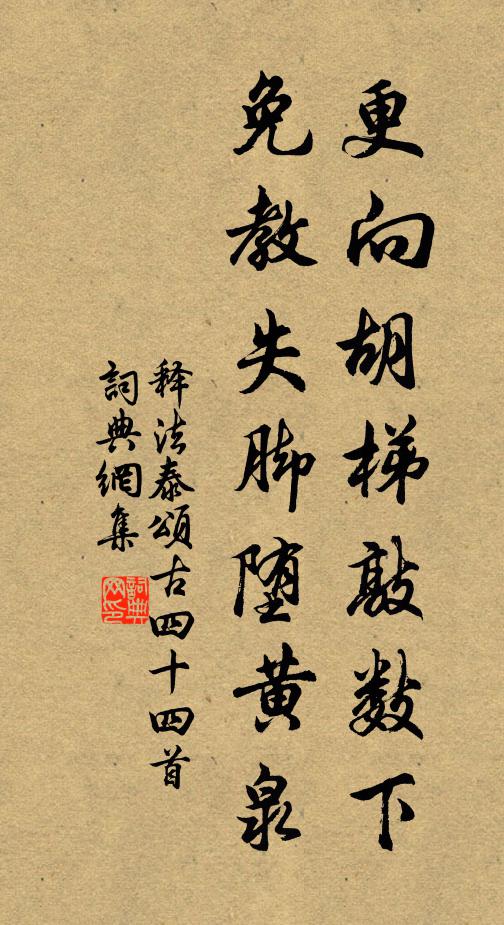 更向胡梯敲数下
免教失脚堕黄泉
释法泰頌古四十四首
詞典網集
詞典网印